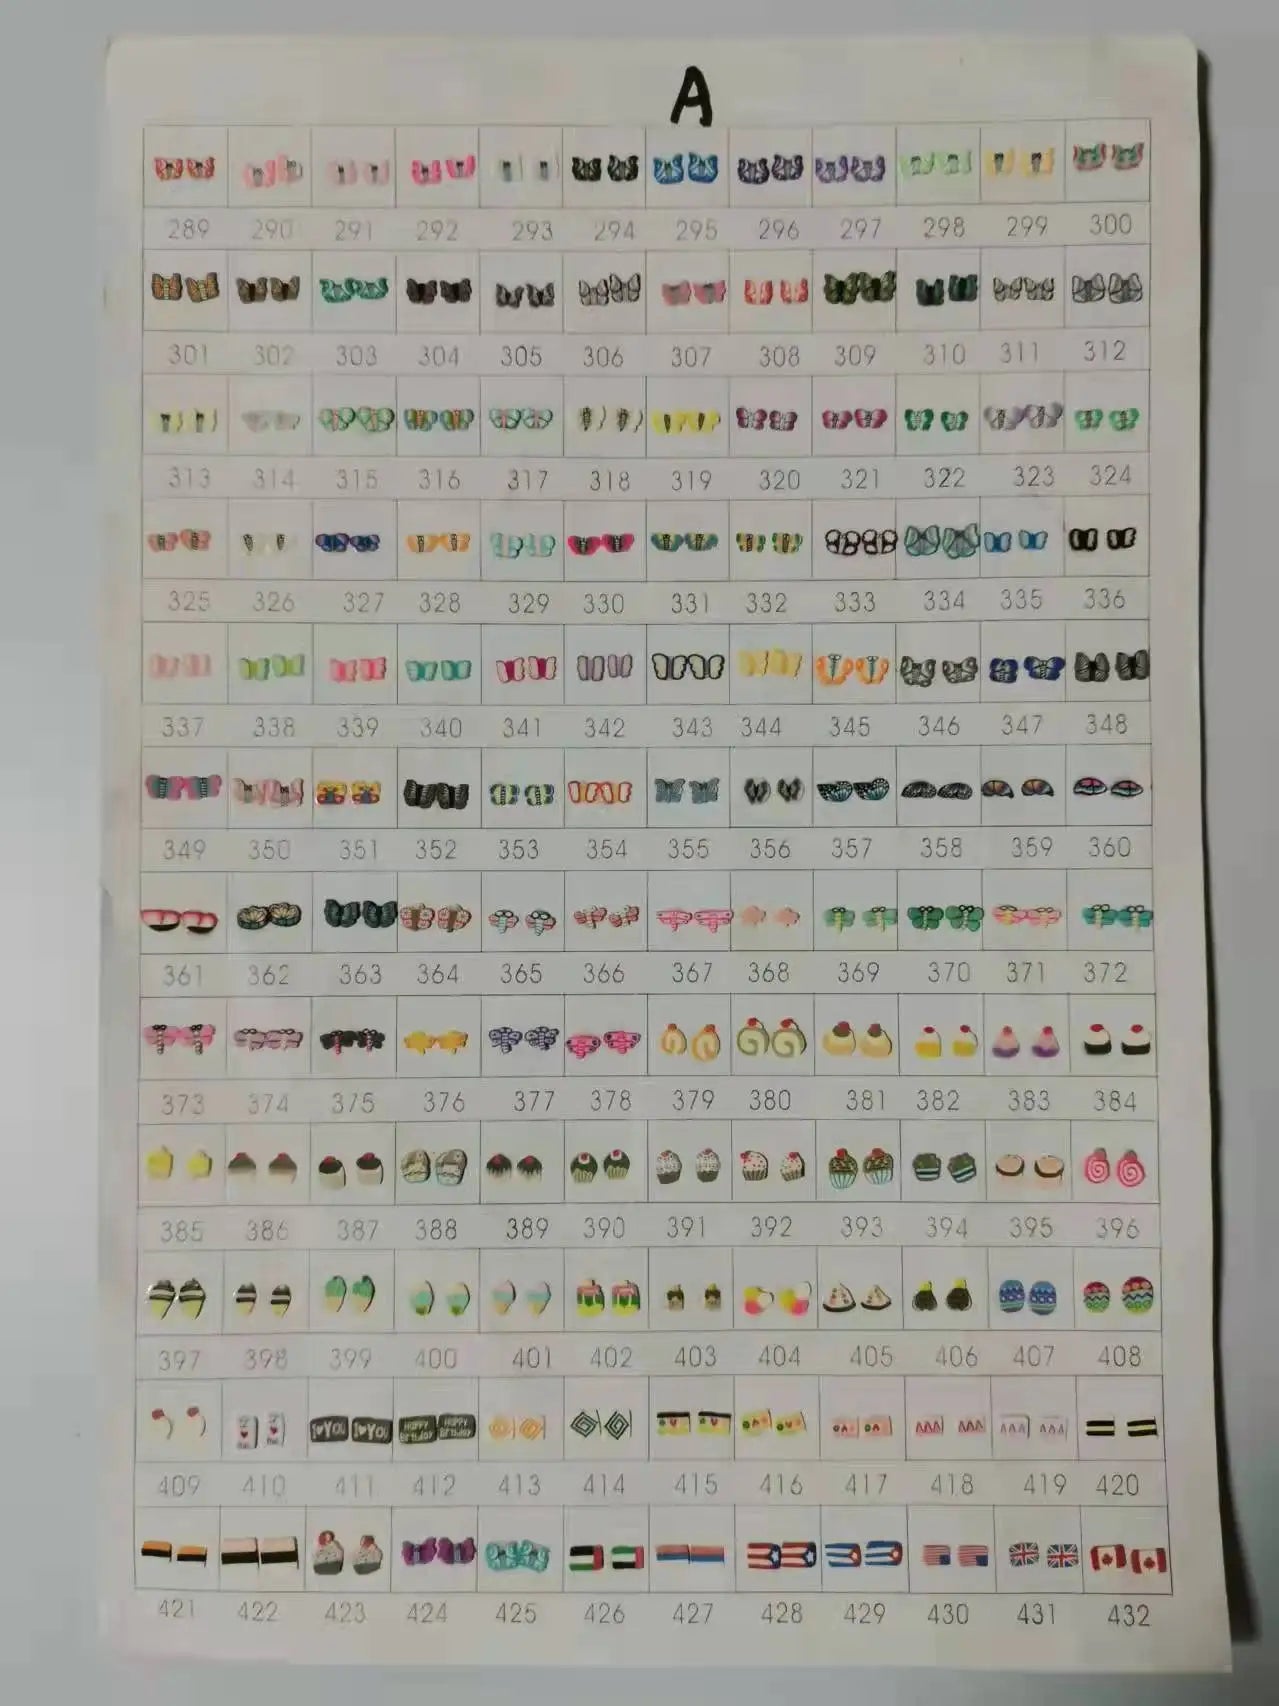 A
289 290 291 292 293 294 295 296 297 298 299 300
301 302 303 304 305 306 307 308 309 310 311 312
313 314 315 316 317 318 319 320 321 322 323 324
325 326 327 328 329 330 331 332 333 334 335 336
337 338 339 340 341 342 343 344 345 346 347 348
349 350 351 352 353 354 355 356 357 358 359 360
361 362 363 364 365 366 367 368 369 370 371 372
373 374 375 376 377 378 379 380 381 382 383 384
385 386 387 388 389 390 391 392 393 394 395 396
397 398 399 400 401 402 403 404 405 406 407 408
I♥YOU I♥YOU HAPPY Birthday HAPPY Birthday
409 410 411 412 413 414 415 416 417 418 419 420
421 422 423 424 425 426 427 428 429 430 431 432